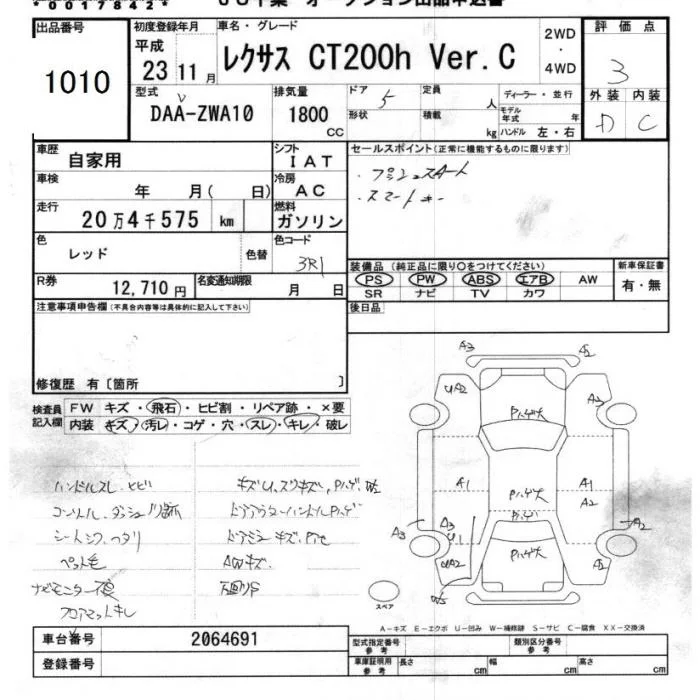 *00178421*
出品番号
1010
初度登録年月
平成
23 11月
車名・グレード
レクサス CT200h Ver.C
2WD
・
4WD
評価点
3
外装 内装
D C
型式
DAA-ZWA10
排気量
1800
CC
ドア 5 定員 人
形状 積載 kg
ディーラー・並行
モデル年式 年
ハンドル 左・右
車歴 自家用
シフト IAT
車検 年 月( 日)
冷房 AC
走行 20万4千575 km
燃料 ガソリン
色 レッド 色替
色コード 3R1
R券 12,710円
名変通知期限 月 日
セールスポイント(正常に機能するものに限ります)
・プッシュスタート
・スマートキー
装備品(純正品に限り○をつけてください)
PS PW ABS エアB AW
SR ナビ TV カワ
新車保証書
有・無
後日品
注意事項申告欄(不具合内容等は具体的に記入して下さい)
修復歴 有〔箇所 〕
検査員記入欄
FW キズ・飛石・ヒビ割・リペア跡・×要
内装 キズ・汚レ・コゲ・穴・スレ・キレ・破レ
ハンドルスレ、ヒビ
シートシワ、ヘタリ
ペット毛
ナビモニター不良
フロアマットキレ
ドアアウターハンドルPハゲ
ドアミラーキズ、
AWキズ
A3 A2
UA2 Pハゲ大 A2
A1 Pハゲ大 A1
A2
Pハゲ
A3 A3 U1 A2
Pハゲ大
スペア
A-キズ E-エクボ U-凹み W-補修跡 S-サビ C-腐食 XX-交換済
車台番号 2064691
登録番号
型式指定番号 参考
類別区分番号 参考
車庫証明用 参考 長さ cm 幅 cm 高さ cm